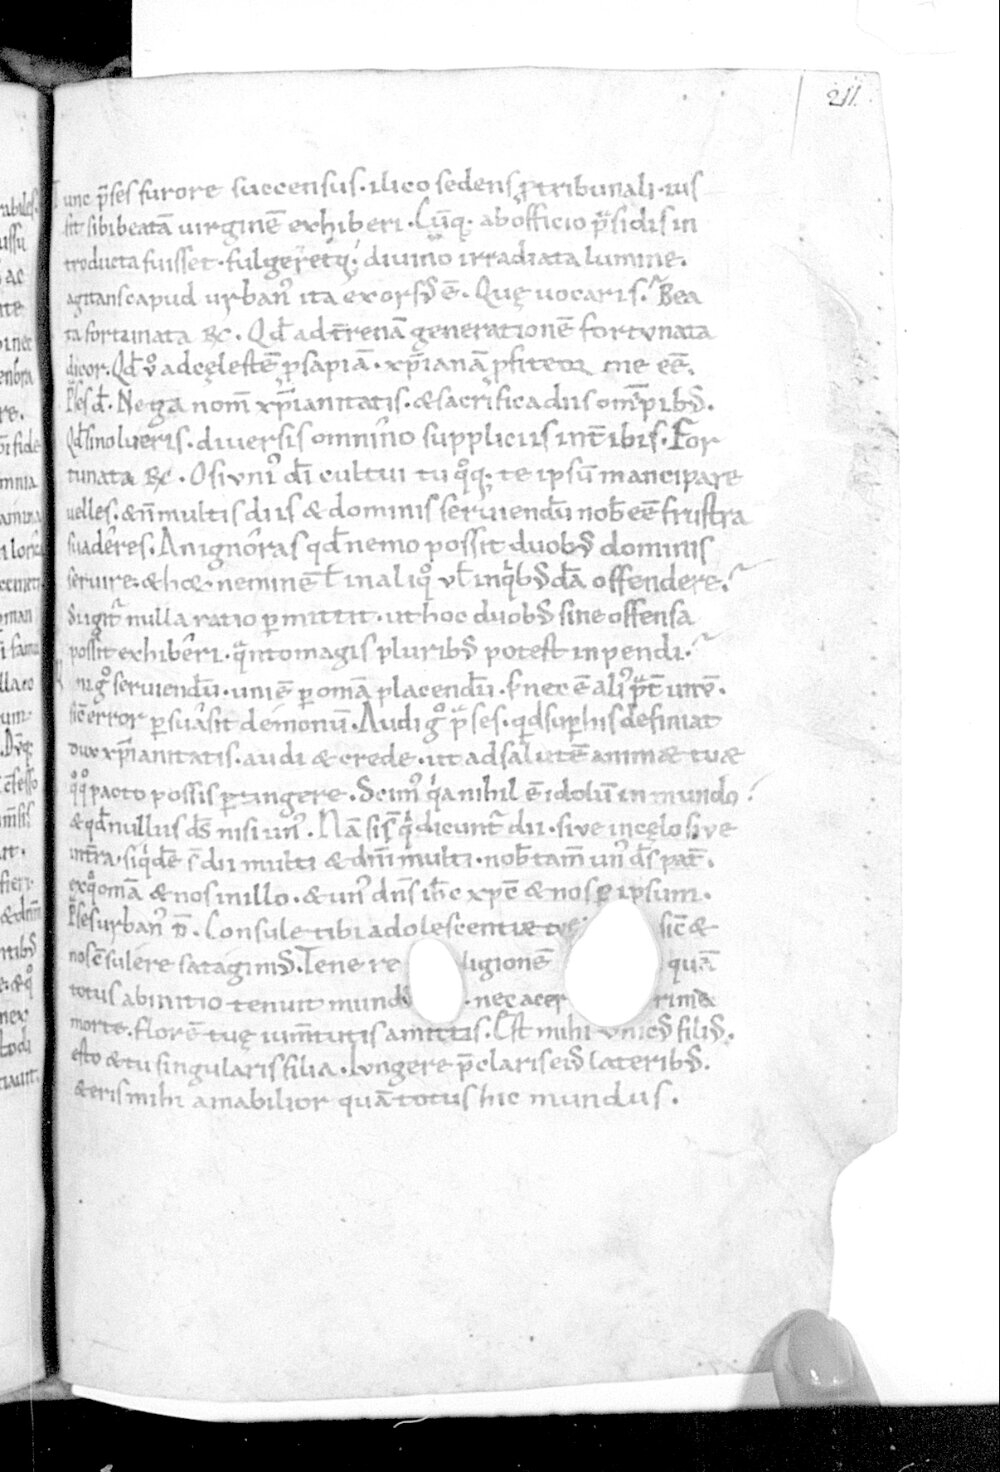 211
Tunc p̄ses furore succensus · ilico sedens ꝓ tribunali · ius
sit sibi beatā uirginē exhiberi · Cūq; ab officio p̄sidis in
troducta fuisset · fulgeretq; diuino irradiata lumine.
agitans capud urban᷒ ita exors᷒ ē. Quę uocaris? Bea
ta fortunata R᷒. Qđ ad t̄renā generationē fortunata
dicor. Qđ v̊ ad cęlestē ꝓsapiā · xp̄ianā ꝓfiteor me eē.
P̄ses đ. Nega nom̄ xp̄ianitatis. & sacrifica diis om̄ipib᷒.
Qđ si nolueris. diuersis omnino suppliciis int̄ibis. For
tunata R᷒. O si uni᷒ dī cultui tu qͦq; te ipsū mancipare
uelles. & n̄ multis diis & dominis seruiendū nob̄ eē frustra
suaderes. An ignoras qđ nemo possit duob᷒ dominis
seruire. & hoc neminē ł in aliqͦ uł in qͥb᷒dā offendere?
Si igit᷒ nulla ratio ꝑmittit · ut hoc duob᷒ sine offensa
possit exhiberi · qͣnto magis plurib᷒ potest inpendi?
Unī gͦ seruiendū · uni ē ꝑ omā placendū · & nec ē ali᷒ p̄t unū.
sic̄ error ꝑsuasit demonū. Audi gͦ p̄ses · quid suꝑ his definiat
dux xp̄ianitatis. audi & crede · ut ad salutē animæ tuæ
qͦqͦ pacto possis ꝑtingere. Scim᷒ qͥa nihil ē idolū in mundo.
& qđ nullus d̄s nisi un᷒. Nā si s̄ qͥ dicunt᷒ dii · siue in cęlo siue
in t̄ra · siqͥdē s̄ dii multi & dn̄i multi · nob̄ tam̄ un᷒ d̄s pat̄.
ex qͦ omā & nos in illo · & un᷒ dn̄s ih̄c xp̄c & nos ꝑ ipsum.
P̄ses urban᷒ đ. Consule tibi adolescentiæ tuę sic̄ &
nos c̄sulere satagim᷒. Tene re ligionē quā
totus ab initio tenuit mund᷒ · nec acer rima
morte · florē tuę iuuētutis amittas. Est mihi unic᷒ fili᷒.
esto & tu singularis filia. Iungere p̄claris ei᷒ laterib᷒.
& eris mihi amabilior quā totus hic mundus.